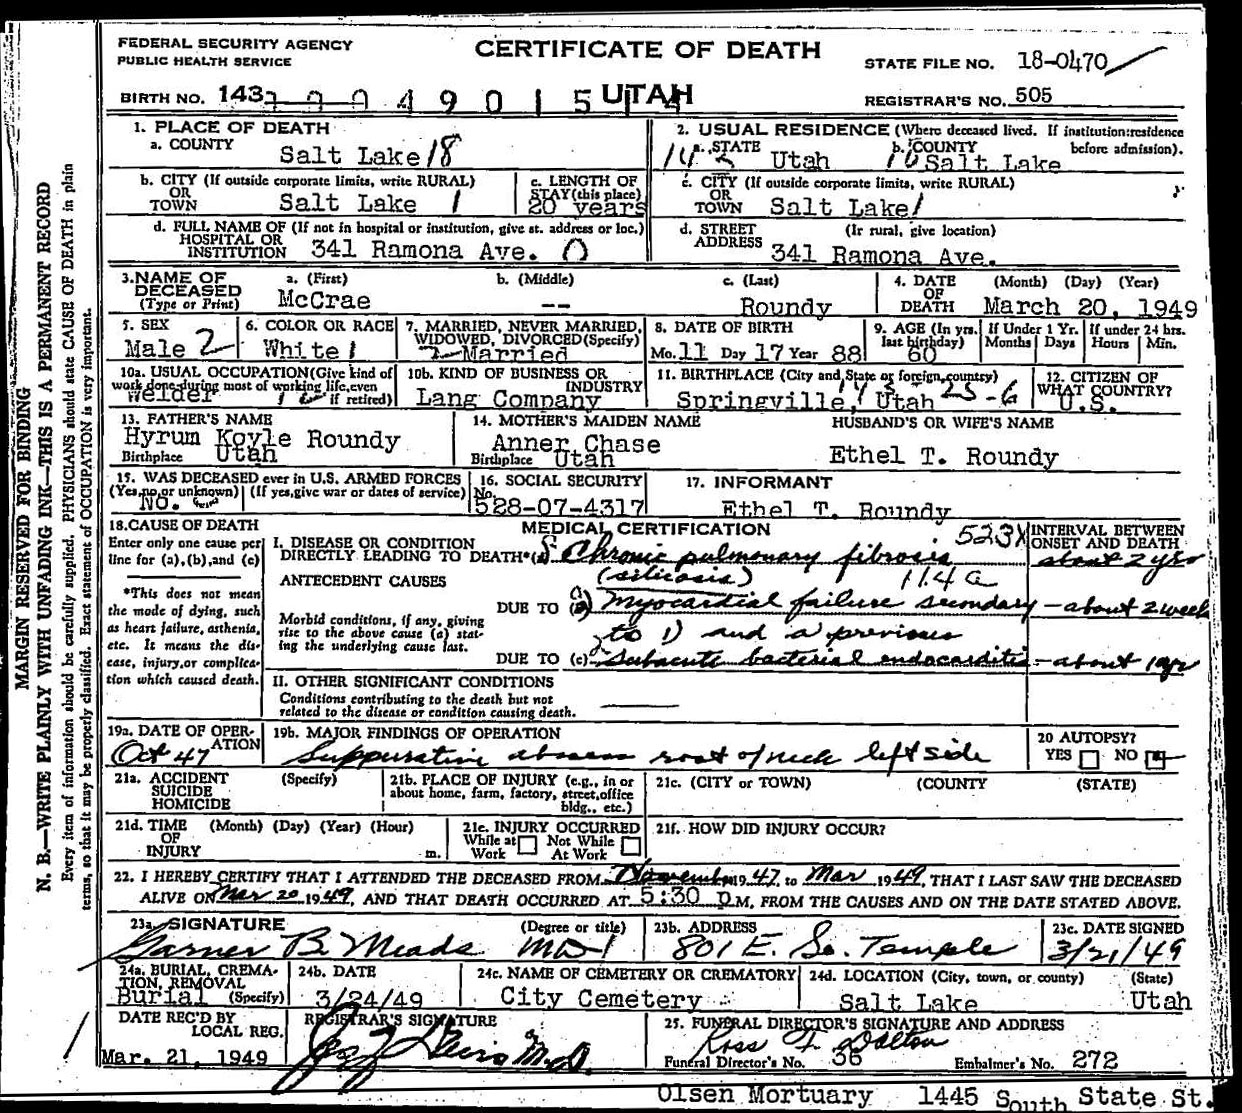 FEDERAL SECURITY AGENCY
PUBLIC HEALTH SERVICE
CERTIFICATE OF DEATH
UTAH
STATE FILE NO. 18-0470
BIRTH NO. 143
REGISTRAR'S NO. 505
1. PLACE OF DEATH
a. COUNTY
Salt Lake 18
2. USUAL RESIDENCE (Where deceased lived. If institution: residence before admission).
a. STATE Utah
b. COUNTY Salt Lake
b. CITY (If outside corporate limits, write RURAL)
OR
TOWN Salt Lake 1
c. LENGTH OF
STAY (this place)
20 years
c. CITY (If outside corporate limits, write RURAL)
OR
TOWN Salt Lake 1
d. FULL NAME OF (If not in hospital or institution, give st. address or loc.)
HOSPITAL OR
INSTITUTION 341 Ramona Ave. 0
d. STREET (If rural, give location)
ADDRESS 341 Ramona Ave.
3. NAME OF
DECEASED
(Type or Print)
a. (First)
McCrae
b. (Middle)
--
c. (Last)
Roundy
4. DATE
OF
DEATH
(Month) (Day) (Year)
March 20, 1949
5. SEX
Male 2
6. COLOR OR RACE
White 1
7. MARRIED, NEVER MARRIED,
WIDOWED, DIVORCED (Specify)
2 Married
8. DATE OF BIRTH
Mo. 11 Day 17 Year 88
9. AGE (In yrs.
last birthday)
60
If Under 1 Yr.
Months Days
If under 24 hrs.
Hours Min.
10a. USUAL OCCUPATION (Give kind of
work done during most of working life, even
if retired)
Welder
10b. KIND OF BUSINESS OR
INDUSTRY
Lang Company
11. BIRTHPLACE (City and State or foreign country)
Springville, Utah 25-6
12. CITIZEN OF
WHAT COUNTRY?
U.S.
13. FATHER'S NAME
Hyrum Koyle Roundy
Birthplace Utah
14. MOTHER'S MAIDEN NAME
Anner Chase
Birthplace Utah
HUSBAND'S OR WIFE'S NAME
Ethel T. Roundy
15. WAS DECEASED ever in U.S. ARMED FORCES
(Yes, no, or unknown) (If yes, give war or dates of service)
No.
16. SOCIAL SECURITY
No.
528-07-4317
17. INFORMANT
Ethel T. Roundy
18. CAUSE OF DEATH
Enter only one cause per
line for (a), (b), and (c)
*This does not mean
the mode of dying, such
as heart failure, asthenia,
etc. It means the dis-
ease, injury, or complica-
tion which caused death.
MEDICAL CERTIFICATION
523X
INTERVAL BETWEEN
ONSET AND DEATH
I. DISEASE OR CONDITION
DIRECTLY LEADING TO DEATH* (a) Chronic pulmonary fibrosis about 2 yrs
(silicosis) 114a
ANTECEDENT CAUSES
Morbid conditions, if any, giving
rise to the above cause (a) stat-
ing the underlying cause last.
DUE TO (b) Myocardial failure secondary - about 2 weeks
to 1) and a previous
DUE TO (c) Subacute bacterial endocarditis - about 1 yr
II. OTHER SIGNIFICANT CONDITIONS
Conditions contributing to the death but not
related to the disease or condition causing death.
19a. DATE OF OPER-
ATION
Oct 47
19b. MAJOR FINDINGS OF OPERATION
Suppurative abscess root of neck left side
20 AUTOPSY?
YES NO
21a. ACCIDENT
SUICIDE
HOMICIDE
(Specify)
21b. PLACE OF INJURY (e.g., in or
about home, farm, factory, street, office
bldg., etc.)
21c. (CITY or TOWN) (COUNTY) (STATE)
21d. TIME
OF
INJURY
(Month) (Day) (Year) (Hour)
m.
21e. INJURY OCCURRED
While at Work Not While At Work
21f. HOW DID INJURY OCCUR?
22. I HEREBY CERTIFY THAT I ATTENDED THE DECEASED FROM November 1947, to Mar 1949, THAT I LAST SAW THE DECEASED
ALIVE ON Mar 20 1949, AND THAT DEATH OCCURRED AT 5:30 p M, FROM THE CAUSES AND ON THE DATE STATED ABOVE.
23a. SIGNATURE
Garner B. Meads
(Degree or title)
MD
23b. ADDRESS
801 E. So. Temple
23c. DATE SIGNED
3/21/49
24a. BURIAL, CREMA-
TION, REMOVAL
(Specify)
Burial
24b. DATE
3/24/49
24c. NAME OF CEMETERY OR CREMATORY
City Cemetery
24d. LOCATION (City, town, or county) (State)
Salt Lake Utah
DATE REC'D BY
LOCAL REG.
Mar. 21, 1949
REGISTRAR'S SIGNATURE
M.D.
25. FUNERAL DIRECTOR'S SIGNATURE AND ADDRESS
Ross F. Dalton
Funeral Director's No. 36
Embalmer's No. 272
Olsen Mortuary 1445 South State St.
MARGIN RESERVED FOR BINDING
N. B.—WRITE PLAINLY WITH UNFADING INK—THIS IS A PERMANENT RECORD
Every item of information should be carefully supplied. PHYSICIANS should state CAUSE OF DEATH in plain
terms, so that it may be properly classified. Exact statement of OCCUPATION is very important.